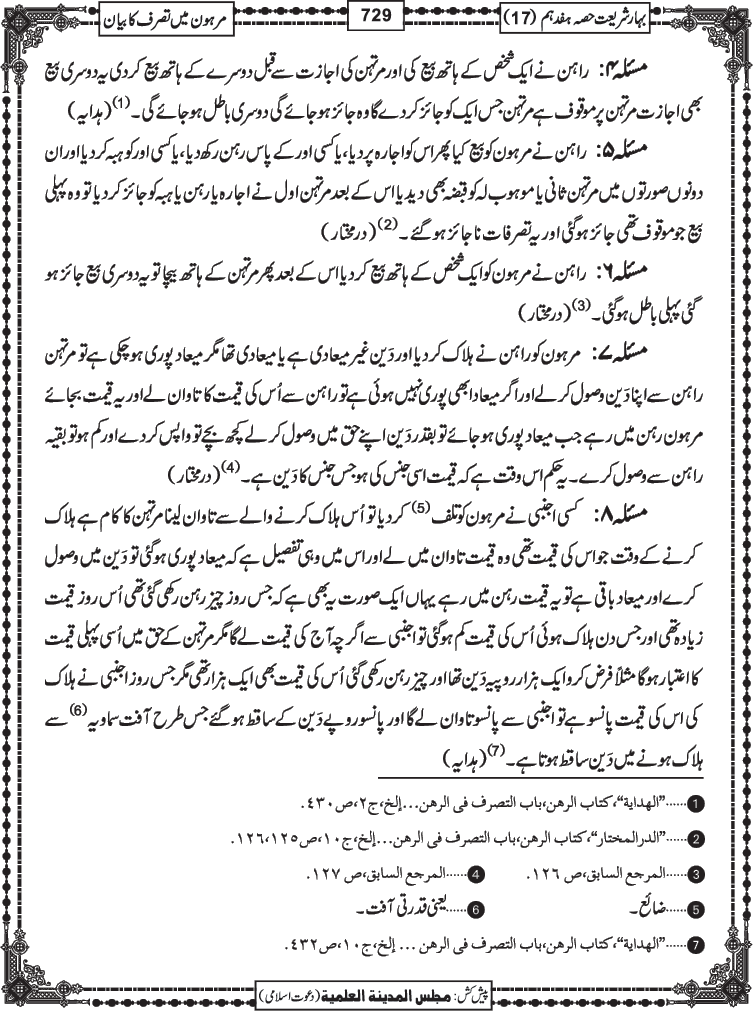 بہار شریعت حصہ ہفدہم (17)
729
مرہون میں تصرف کا بیان
مسئلہ ۴: راہن نے ایک شخص کے ہاتھ بیع کی اور مرتہن کی اجازت سے قبل دوسرے کے ہاتھ بیع کر دی یہ دوسری بیع
بھی اجازت مرتہن پر موقوف ہے مرتہن جس ایک کو جائز کر دے گا وہ جائز ہوجائے گی دوسری باطل ہوجائے گی۔(1) (ہدایہ)
مسئلہ ۵: راہن نے مرہون کو بیع کیا پھر اس کو اجارہ پر دیا، یا کسی اور کے پاس رہن رکھ دیا، یا کسی اور کو ہبہ کر دیا اور ان
دونوں صورتوں میں مرتہن ثانی یا موہوب لہ کو قبضہ بھی دیدیا اس کے بعد مرتہن اول نے اجارہ یا رہن یا ہبہ کو جائز کر دیا تو وہ پہلی
بیع جو موقوف تھی جائز ہوگئی اور یہ تصرفات ناجائز ہوگئے۔(2) (درمختار)
مسئلہ ۶: راہن نے مرہون کو ایک شخص کے ہاتھ بیع کر دیا اس کے بعد پھر مرتہن کے ہاتھ بیچا تو یہ دوسری بیع جائز ہو
گئی پہلی باطل ہوگئی۔(3) (درمختار)
مسئلہ ۷: مرہون کو راہن نے ہلاک کر دیا اور دَین غیر میعادی ہے یا میعادی تھا مگر میعاد پوری ہوچکی ہے تو مرتہن
راہن سے اپنا دَین وصول کرلے اور اگر میعاد ابھی پوری نہیں ہوئی ہے تو راہن سے اُس کی قیمت کا تاوان لے اور یہ قیمت بجائے
مرہون رہن میں رہے جب میعاد پوری ہوجائے تو بقدر دَین اپنے حق میں وصول کرلے کچھ بچے تو واپس کر دے اور کم ہو تو بقیہ
راہن سے وصول کرے۔ یہ حکم اس وقت ہے کہ قیمت اسی جنس کی ہو جس جنس کا دَین ہے۔(4) (درمختار)
مسئلہ ۸: کسی اجنبی نے مرہون کو تلف(5) کر دیا تو اُس ہلاک کرنے والے سے تاوان لینا مرتہن کا کام ہے ہلاک
کرنے کے وقت جو اس کی قیمت تھی وہ قیمت تاوان میں لے اور اس میں وہی تفصیل ہے کہ میعاد پوری ہوگئی تو دَین میں وصول
کرے اور میعاد باقی ہے تو یہ قیمت رہن میں رہے یہاں ایک صورت یہ بھی ہے کہ جس روز چیز رہن رکھی گئی تھی اُس روز قیمت
زیادہ تھی اور جس دن ہلاک ہوئی اُس کی قیمت کم ہوگئی تو اجنبی سے اگرچہ آج کی قیمت لے گا مگر مرتہن کے حق میں اُسی پہلی قیمت
کا اعتبار ہوگا مثلاً فرض کرو ایک ہزار روپیہ دَین تھا اور چیز رہن رکھی گئی اُس کی قیمت بھی ایک ہزار تھی مگر جس روز اجنبی نے ہلاک
کی اس کی قیمت پانسو ہے تو اجنبی سے پانسو تاوان لے گا اور پانسو روپے دَین کے ساقط ہوگئے جس طرح آفت سماویہ(6) سے
ہلاک ہونے میں دَین ساقط ہوتا ہے۔(7) (ہدایہ)
1 ......"الهداية"، كتاب الرهن، باب التصرف في الرهن...إلخ، ج٢، ص٤٣٠.
2 ......"الدرالمختار"، كتاب الرهن، باب التصرف في الرهن...إلخ، ج١٠، ص١٢٦،١٢٥.
3 ......المرجع السابق، ص ١٢٦. 4 ......المرجع السابق، ص ١٢٧.
5 ......ضائع۔ 6 ......یعنی قدرتی آفت۔
7 ......"الهداية"، كتاب الرهن، باب التصرف في الرهن ... إلخ، ج١٠، ص٤٣٢.
پیش کش: مجلس المدينة العلمية (دعوت اسلامی)